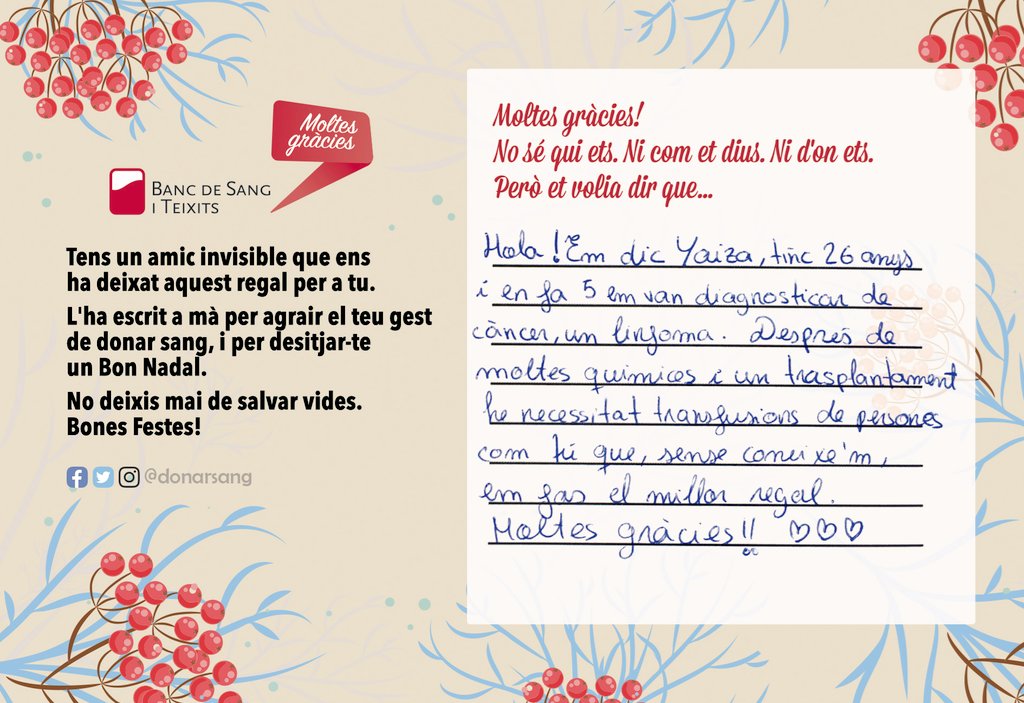 Moltes
gràcies
BANC DE SANG
I TEIXITS
Tens un amic invisible que ens
ha deixat aquest regal per a tu.
L'ha escrit a mà per agrair el teu gest
de donar sang, i per desitjar-te
un Bon Nadal.
No deixis mai de salvar vides.
Bones Festes!
@donarsang
Moltes gràcies!
No sé qui ets. Ni com et dius. Ni d'on ets.
Però et volia dir que...
Hola! Em dic Yaiza, tinc 26 anys
i en fa 5 em van diagnosticar de
càncer, un linfoma. Desprès de
moltes químices i un trasplantament
he necessitat transfusions de persones
com tú que, sense coneixe'm,
em fas el millor regal.
Moltes gràcies!! ♡♡♡